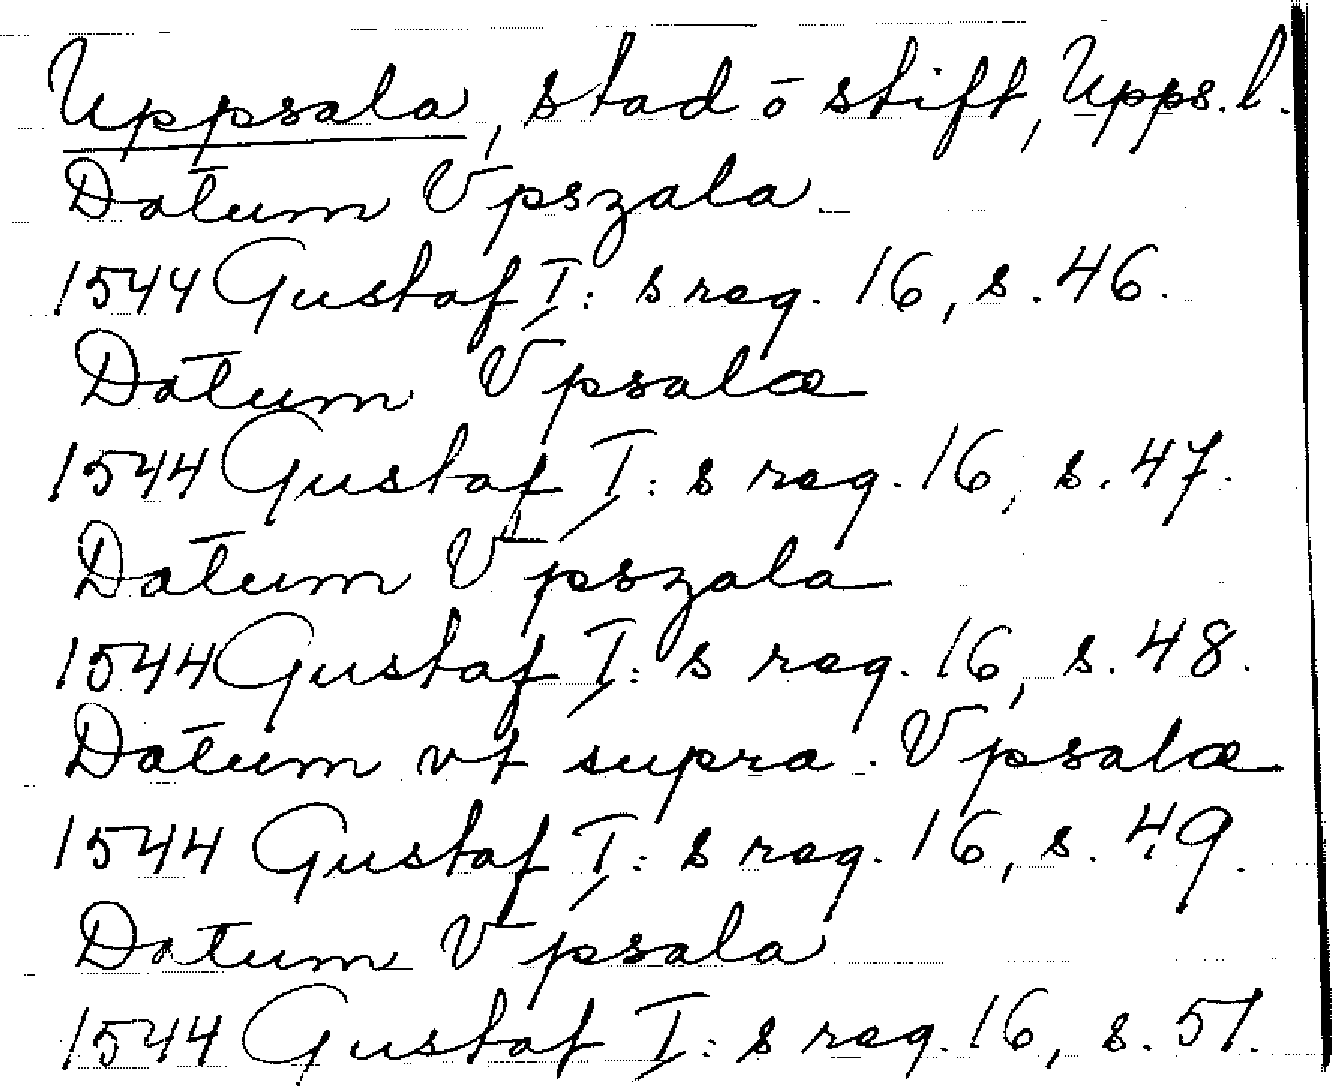 Uppsala, stad o stift, Upps. l.
Datum Vpszala.
1544 Gustaf I: s reg. 16, s. 46.
Datum Vpsalæ
1544 Gustaf I: s reg. 16, s. 47.
Datum Vpszala
1544 Gustaf I: s reg. 16, s. 48.
Datum vt supra. Vpsalæ
1544 Gustaf I: s reg. 16, s. 49.
Datum Vpsala
1544 Gustaf I: s reg. 16, s. 51.